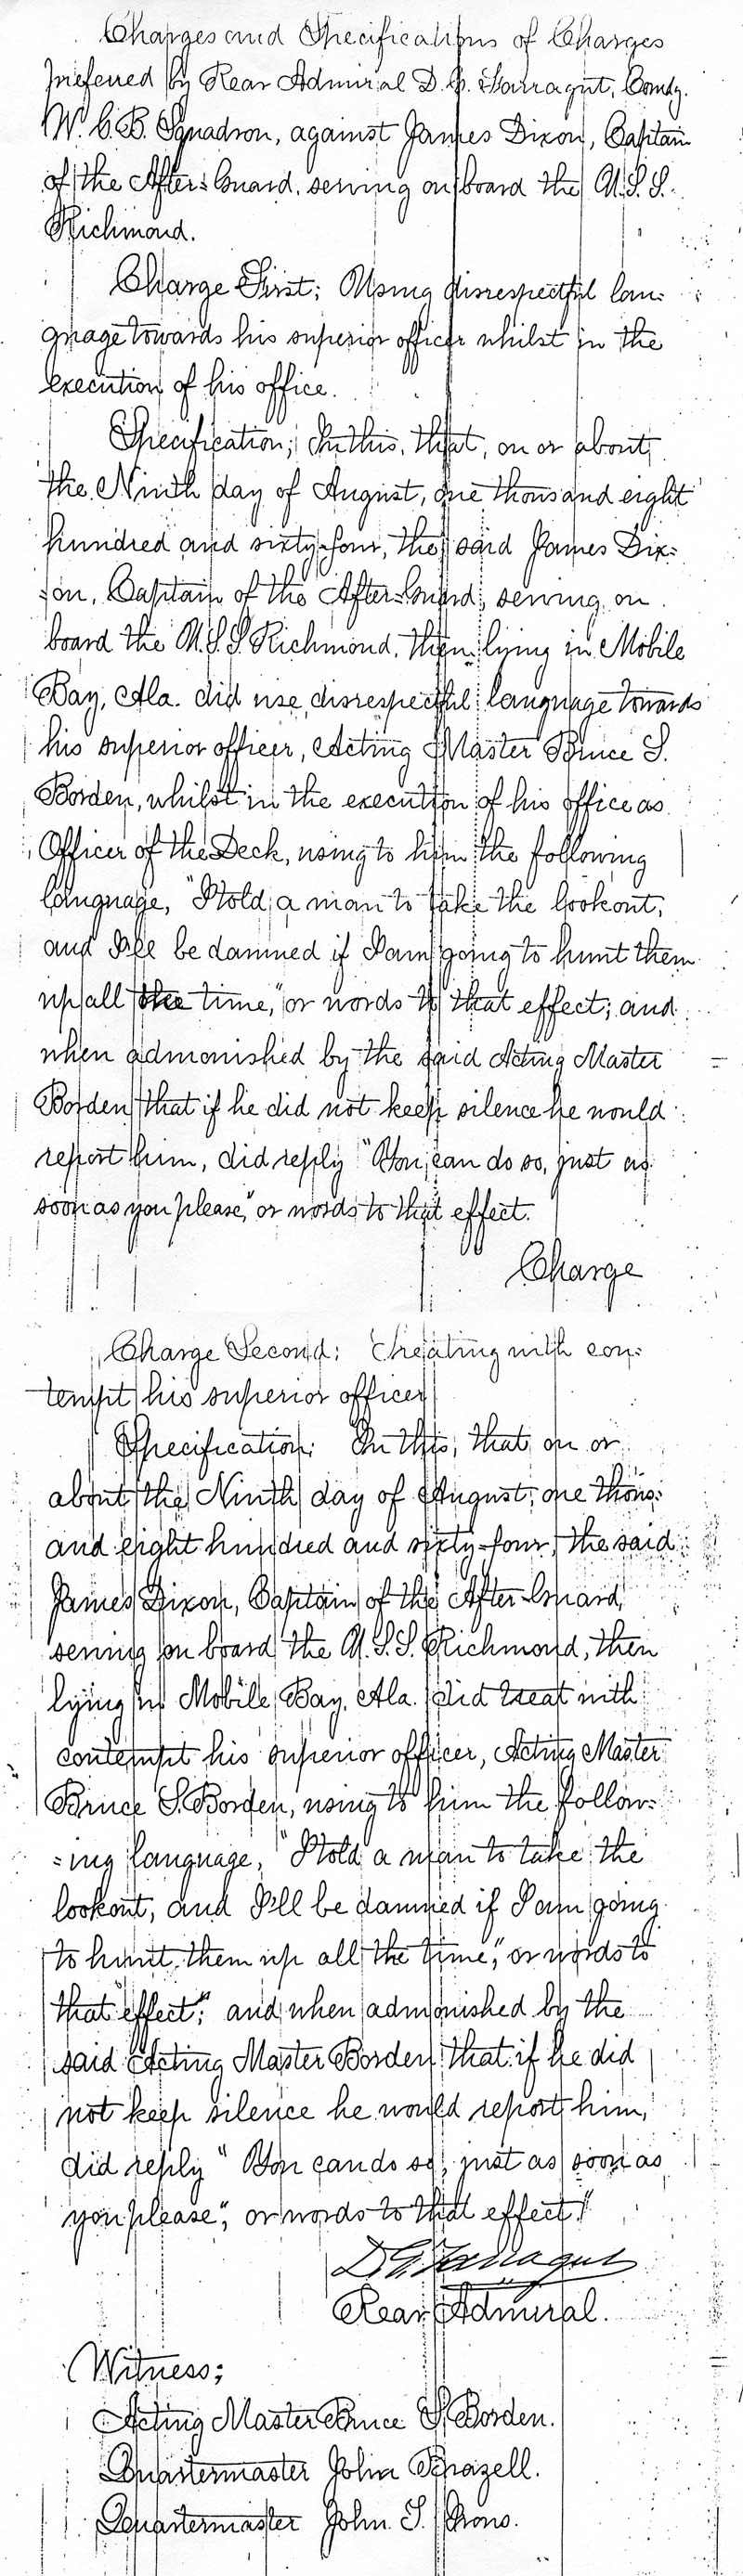 Charges and Specifications of Charges
preferred by Rear Admiral D. G. Farragut, Comdg.
W. G. B. Squadron, against James Dixon, Captain
of the After-Guard, serving on board the U.S.S.
Richmond.
Charge First; Using disrespectful lan-
guage towards his superior officer whilst in the
execution of his office.
Specification; In this, that, on or about,
the Ninth day of August, one thousand eight
hundred and sixty-four, the said James Dix=
=on, Captain of the After-Guard, serving on
board the U.S.S Richmond, then lying in Mobile
Bay, Ala. did use disrespectful language towards
his superior officer, Acting Master Bruce S.
Borden, whilst in the execution of his office as
Officer of the Deck, using to him the following
language, "I told a man to take the lookout,
and I'll be damned if I am going to hunt them
up all the time," or words to that effect; and
when admonished by the said Acting Master
Borden that if he did not keep silence he would
report him, did reply "You can do so, just as
soon as you please," or words to that effect.
Charge
Charge Second: Treating with con:
tempt his superior officer
Specification: In this, that, on or
about the Ninth day of August, one thous:
and eight hundred and sixty-four, the said
James Dixon, Captain of the After-Guard,
serving on board the U.S.S. Richmond, then
lying in Mobile Bay, Ala. did treat with
contempt his superior officer, Acting Master
Bruce S. Borden, using to him the follow=
=ing language, "I told a man to take the
lookout, and I'll be damned if I am going
to hunt them up all the time," or words to
that effect." and when admonished by the
said Acting Master Borden that if he did
not keep silence he would report him,
did reply "You can do so, just as soon as
you please", or words to that effect."
D. G. Farragut
Rear Admiral.
Witness;
Acting Master Bruce S. Borden.
Quartermaster John Brazell.
Quartermaster John S.